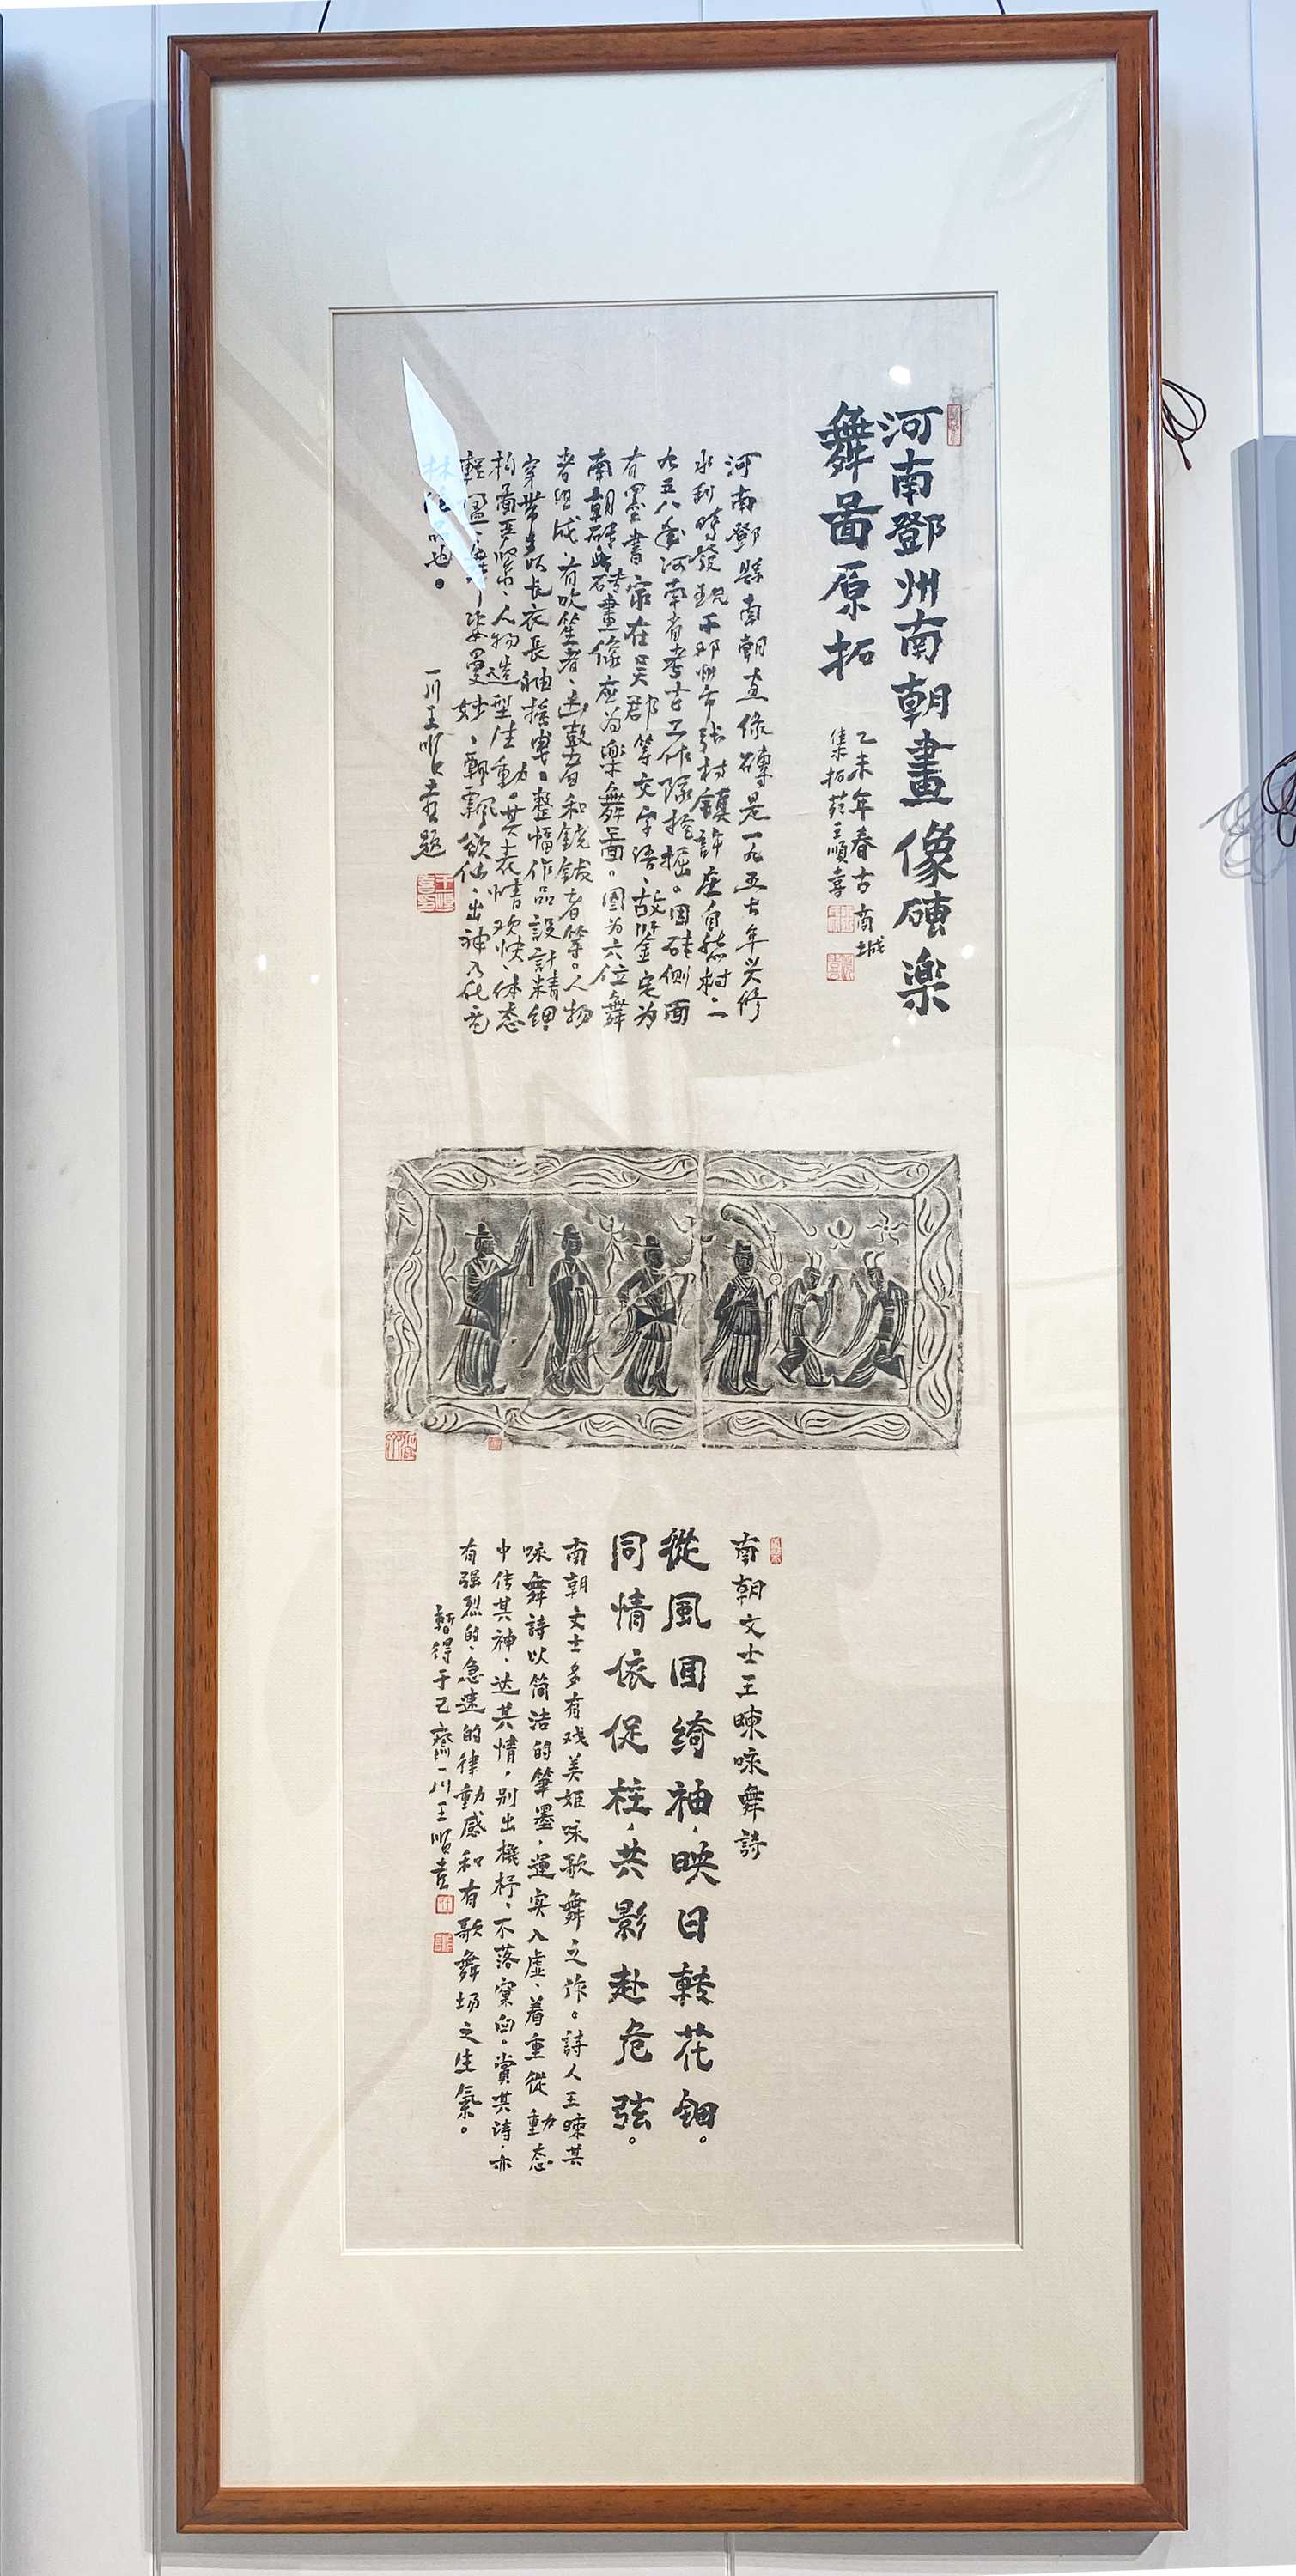 河南鄧州南朝畫像磚楽
舞畵原拓
乙未年春古商城
集拓菀王順喜
河南鄧縣南朝画像磚是一九五七年兴修
水利時發现于邓州市张村鎮許庄自然村二
九五八年河南省考古工作隊挖掘。因砖側面
有墨書家在吴郡等文字语、故鉴定为
南朝砖此砖畫像应为樂舞畵。图为六位舞
者组成、有吹笙者、击鼓者和铙钹者等。人物
穿带多以长衣長袖摇曳。整幅作品設計精細
构畵严紧、人物造型生動。其表情欢快、体态
輕盈、舞姿曼妙、飄飄欲仙、出神入化
也。
一川王順喜題
南朝文士王暕咏舞詩
從風回綺袖、映日転花鈿。
同情依促柱、共影赴危弦。
南朝文士多有戏美姬咏歌舞之作。詩人王暕其
咏舞詩以简洁的筆墨、運实入虚、着重從動态
中传其神、达其情，别出機杼、不落窠臼。賞其诗、亦
有强烈的、急速的律動感和有歌舞场之生氣。
暫得于己齋一川王順喜